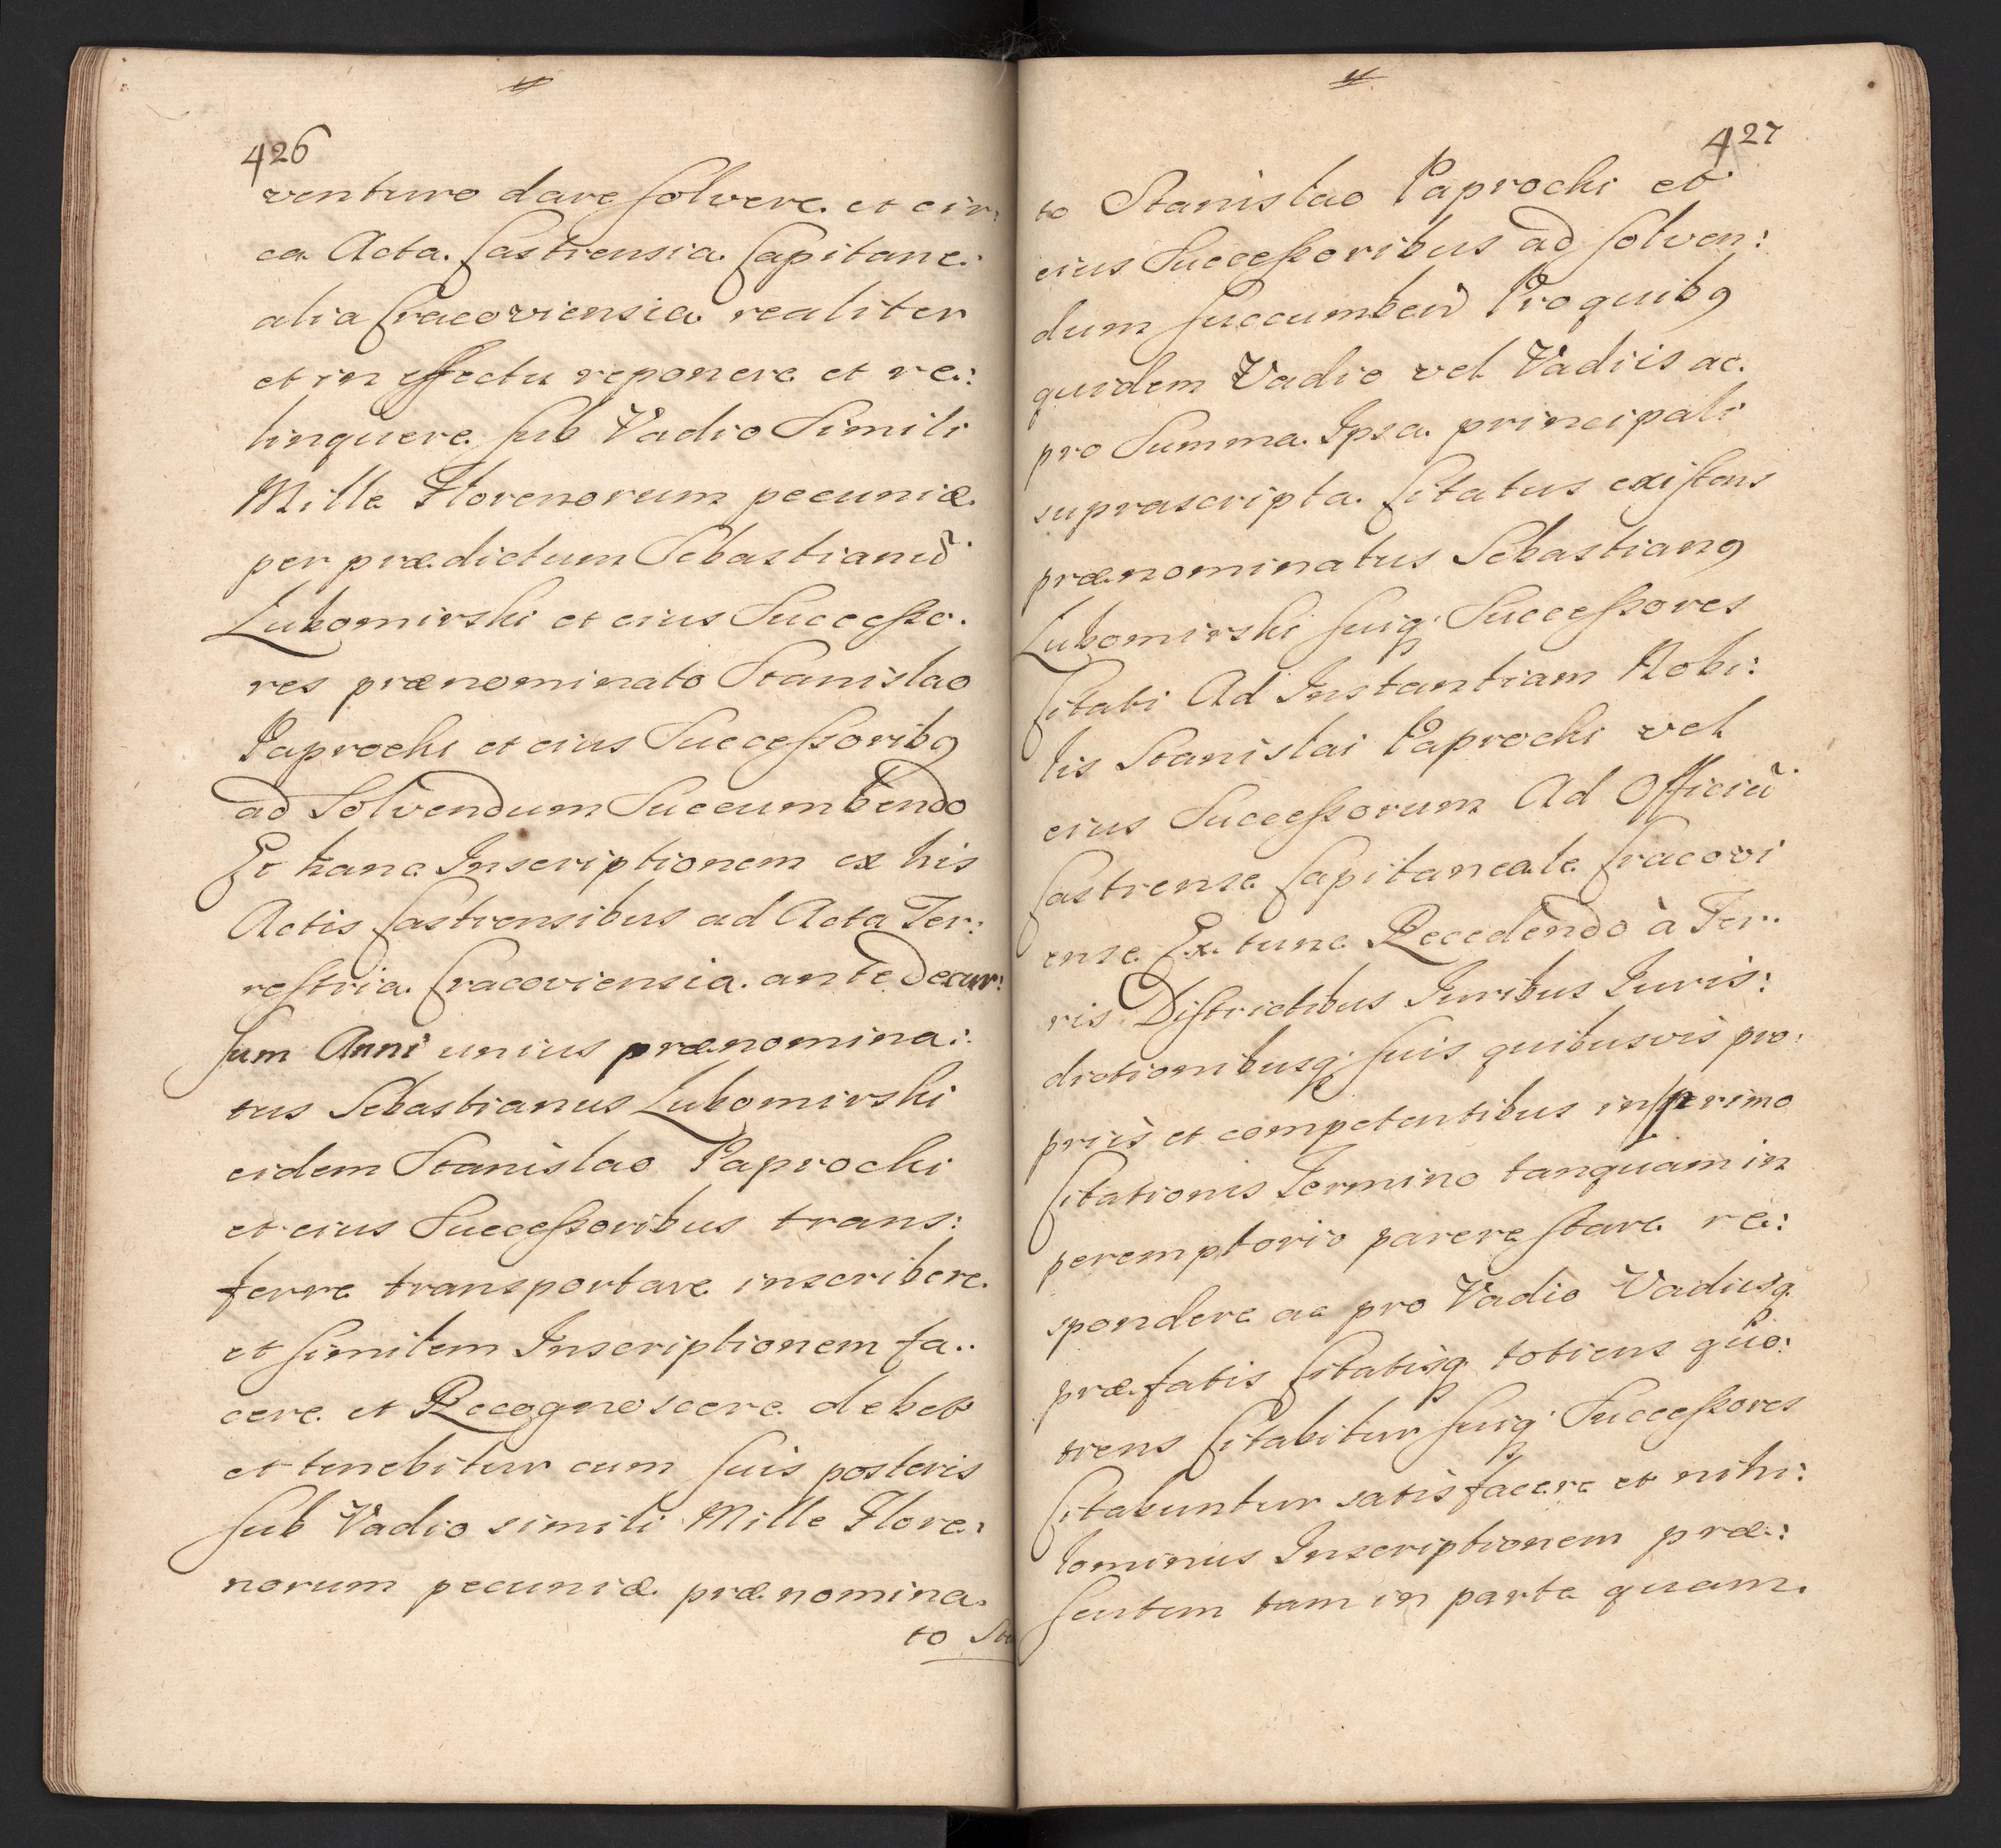 426
venturo dare solvere et cir:
ca Acta Castrensia Capitane:
alia Cracoviensia realiter
et in effectu reponere et re:
linquere sub Vadio Simili
Mille Florenorum pecuniæ
per prædictum Sebastianū
Lubomirski et eius Successo:
res prænominato Stanislao
Paprocki et eius Successoribq
ad Solvendum Succumbendo
Et hanc Inscriptionem ex his
Actis Castrensibus ad Acta Ter:
restria Cracoviensia ante Decur:
sum Anni unius prænomina:
tus Sebastianus Lubomirski
eidem Stanislao Paprocki
et eius Successoribus trans:
ferre transportare inscribere
et similem Inscriptionem fa:
cere et Recognoscere debet
et tenebitur cum suis posteris
sub Vadio simili Mille Flore:
norum pecuniæ prænomina:
to Sta
427
to Stanislao Paprocki et
eius Successoribus ad solven:
dum succumbeñ Pro quibq
quidem Vadio vel Vadiis ac
pro Summa Ipsa principali
suprascripta Citatus existens
prænominatus Sebastianq
Lubomirski suiq; Successores
Citati Ad Instantiam Nobi:
lis Stanislai Paprocki vel
eius Successorum Ad Officiũ
Castrense Capitaneale Cracovi
ense Ex tunc Recedendo à Ter:
ris Districtibus Iuribus Iuris:
dictionibusq; suis quibusvis pro:
priis et competentibus in primo
Citationis Termino tanquam in
peremptorio parere stare re:
spondere ac pro Vadio Vadiisq
præfatis Citatisq totiens quo:
tiens Citabitur suiq; Successores
Citabuntur satisfacere et nihi:
lominus Inscriptionem præ:
sentem tam in parte quam